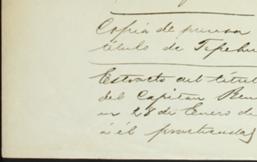 Copia de prensa
título de Tepehu
Estracto del títul
del Capitán Ben
en 28 de Enero de
á él